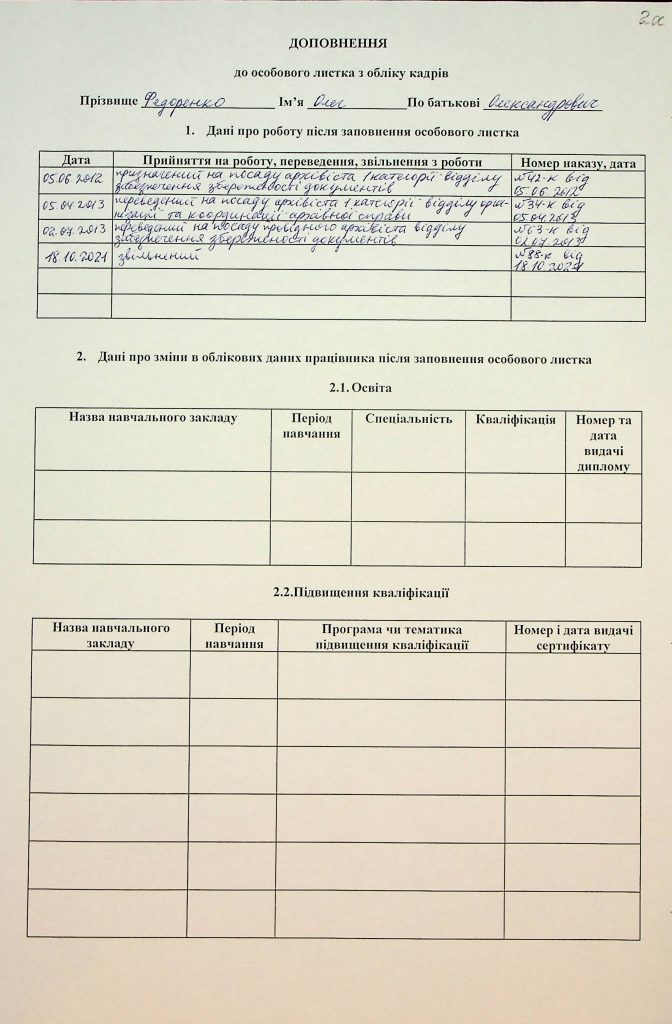 2а
ДОПОВНЕННЯ
до особового листка з обліку кадрів
Прізвище Федоренко Ім’я Олег По батькові Олександрович
1. Дані про роботу після заповнення особового листка
Дата Прийняття на роботу, переведення, звільнення з роботи Номер наказу, дата
05.06 2012 призначений на посаду архівіста 1 категорії відділу №42-к від
забезпечення збереженості документів 05.06 2012
05.04 2013 переведений на посаду архівіста 1 категорії відділу орга- №34-к від
нізації та координації архівної справи 05.04 2013
02.07.2013 переведений на посаду провідного архівіста відділу №63-к від
забезпечення збереженості документів 02.07.2013
18.10.2021 звільнений №88-к від
18.10.2021
2. Дані про зміни в облікових даних працівника після заповнення особового листка
2.1. Освіта
Назва навчального закладу Період Спеціальність Кваліфікація Номер та
навчання дата
видачі
диплому
2.2.Підвищення кваліфікації
Назва навчального Період Програма чи тематика Номер і дата видачі
закладу навчання підвищення кваліфікації сертифікату